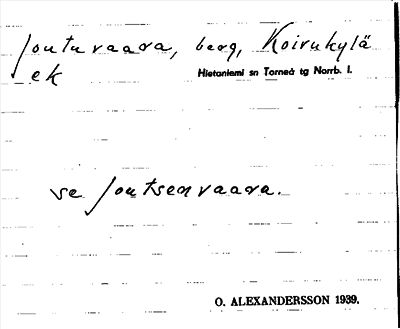 Joutuvaara, berg, Koivukylä
ek Hietaniemi sn Torneå tg Norrb. l.
se Joutsenvaara.
O. ALEXANDERSSON 1939.